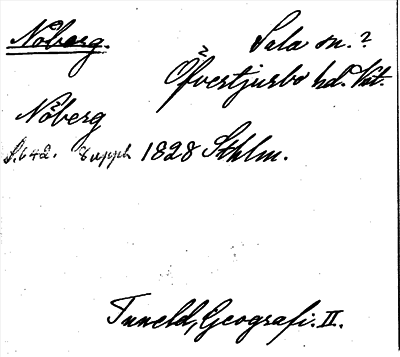 Nöberg. Sala sn.?
Öfvertjurbo hd. Vst.
Nöberg
S. 642. 8 uppl. 1828 Sthlm.
Tuneld, Geografi. II.